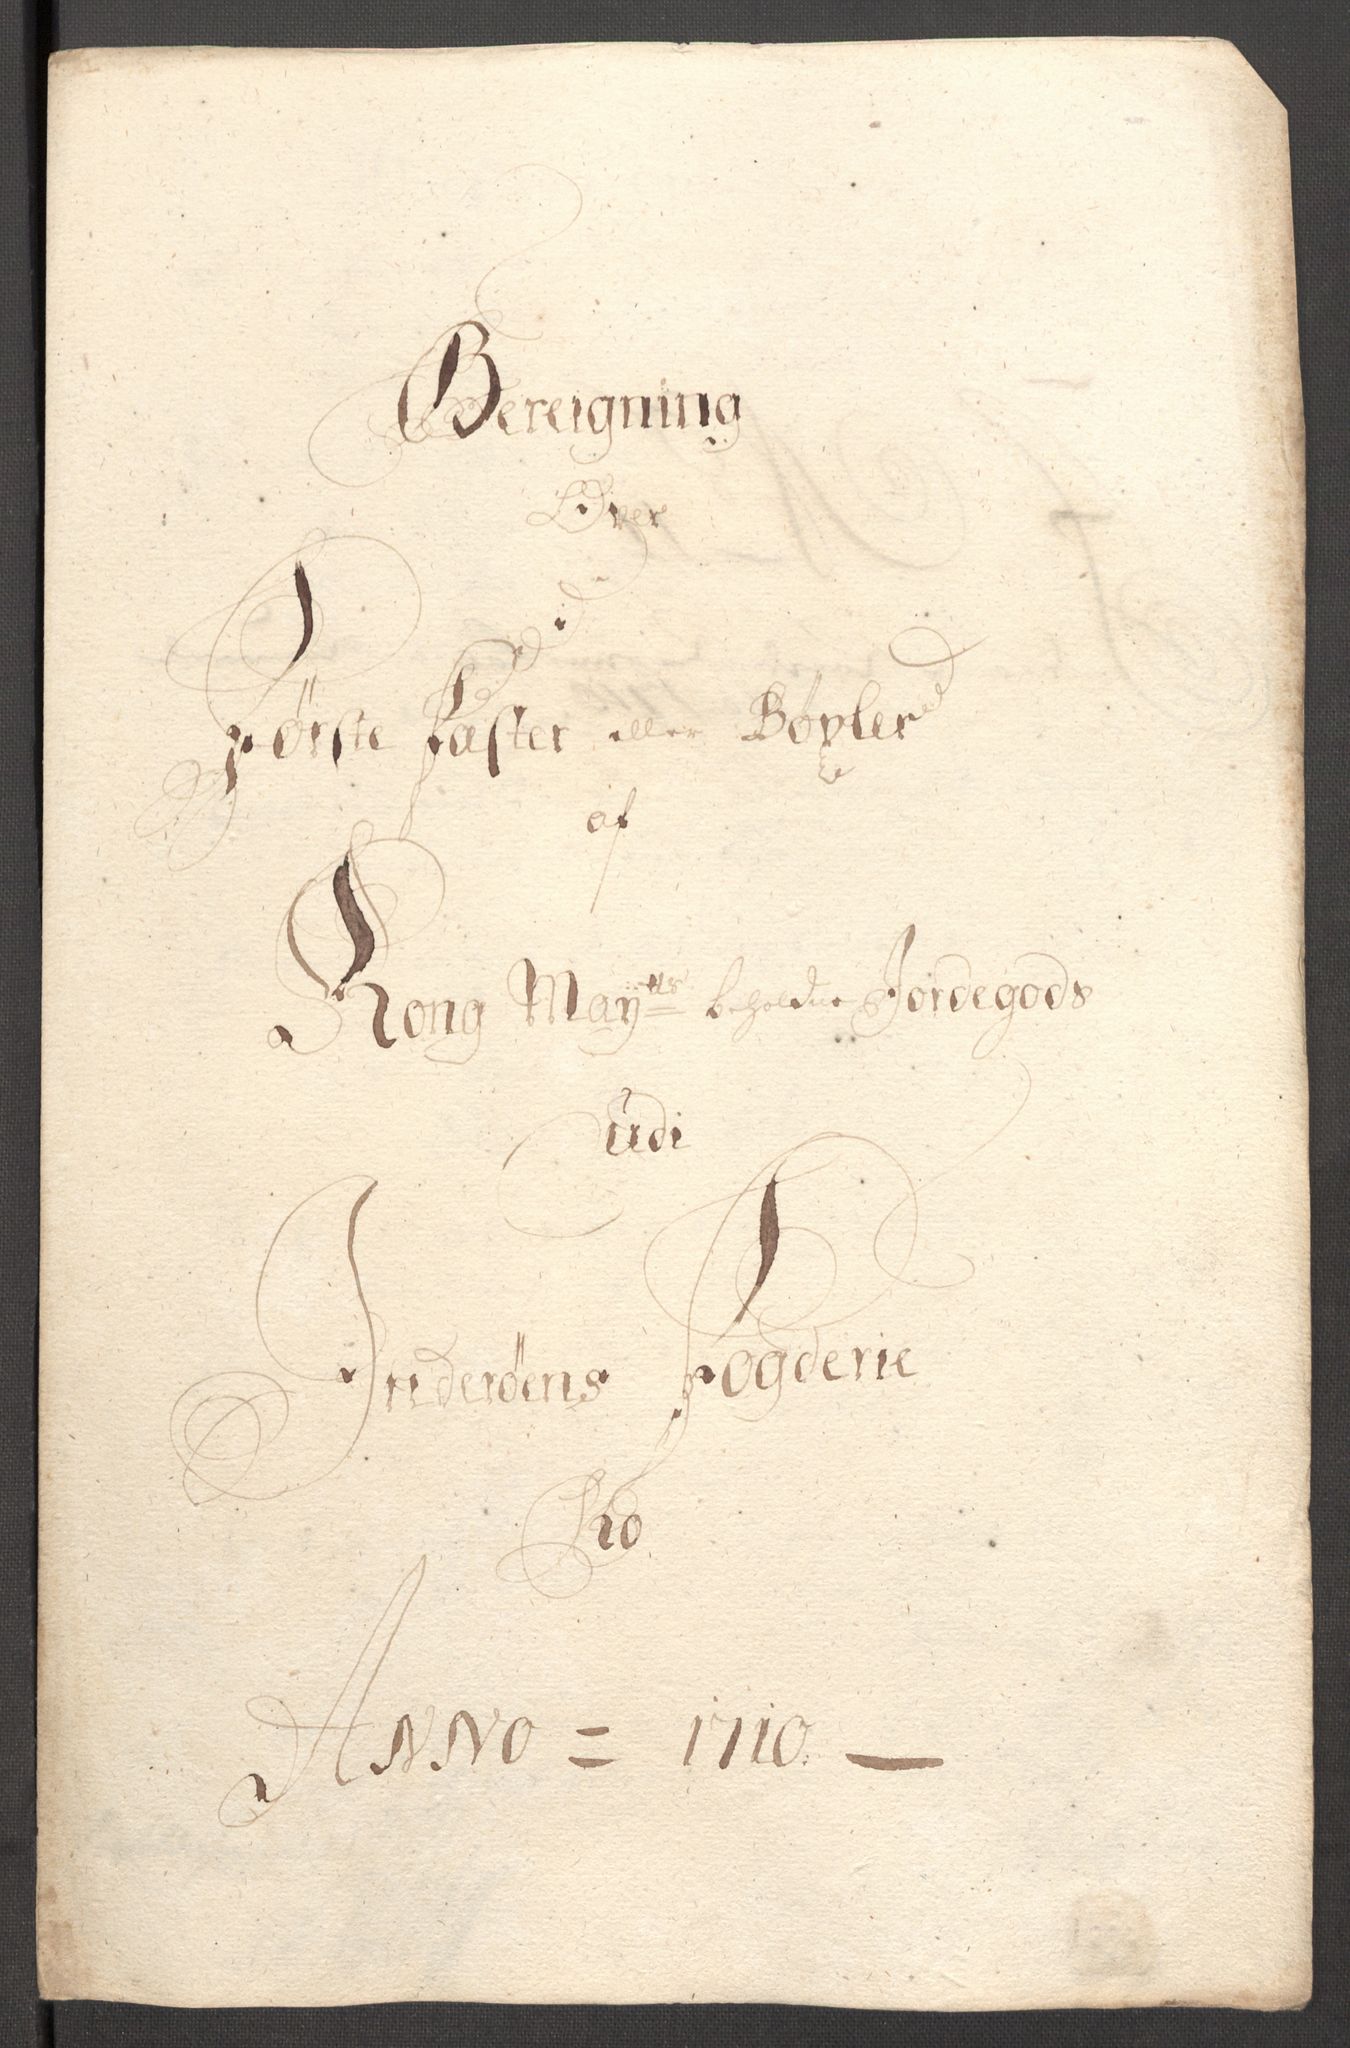 Bereigning
Over
Første Fæster eller Bøxler
af
Kong Maÿts beholdne Jordegods
udi
Inderøens Fogderie
Pro
ANNO = 1710. —